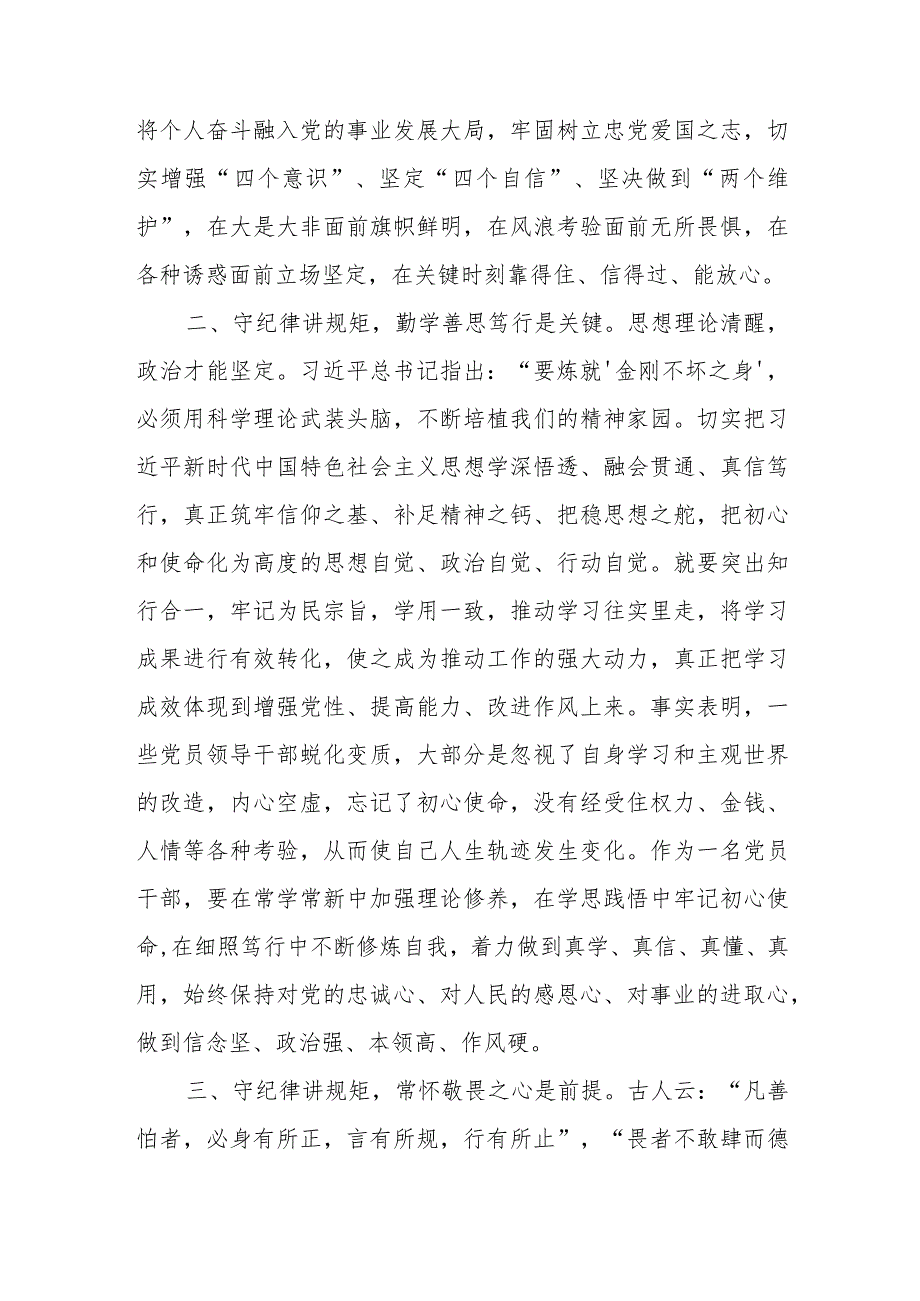 将个人奋斗融入党的事业发展大局，牢固树立忠党爱国之志，切
实增强“四个意识”、坚定“四个自信”、坚决做到“两个维
护”，在大是大非面前旗帜鲜明，在风浪考验面前无所畏惧，在
各种诱惑面前立场坚定，在关键时刻靠得住、信得过、能放心。
二、守纪律讲规矩，勤学善思笃行是关键。思想理论清醒，
政治才能坚定。习近平总书记指出：“要炼就'金刚不坏之身'，
必须用科学理论武装头脑，不断培植我们的精神家园。切实把习
近平新时代中国特色社会主义思想学深悟透、融会贯通、真信笃
行，真正筑牢信仰之基、补足精神之钙、把稳思想之舵，把初心
和使命化为高度的思想自觉、政治自觉、行动自觉。就要突出知
行合一，牢记为民宗旨，学用一致，推动学习往实里走，将学习
成果进行有效转化，使之成为推动工作的强大动力，真正把学习
成效体现到增强党性、提高能力、改进作风上来。事实表明，一
些党员领导干部蜕化变质，大部分是忽视了自身学习和主观世界
的改造，内心空虚，忘记了初心使命，没有经受住权力、金钱、
人情等各种考验，从而使自己人生轨迹发生变化。作为一名党员
干部，要在常学常新中加强理论修养，在学思践悟中牢记初心使
命,在细照笃行中不断修炼自我，着力做到真学、真信、真懂、真
用，始终保持对党的忠诚心、对人民的感恩心、对事业的进取心，
做到信念坚、政治强、本领高、作风硬。
三、守纪律讲规矩，常怀敬畏之心是前提。古人云：“凡善
怕者，必身有所正，言有所规，行有所止”，“畏者不敢肆而德